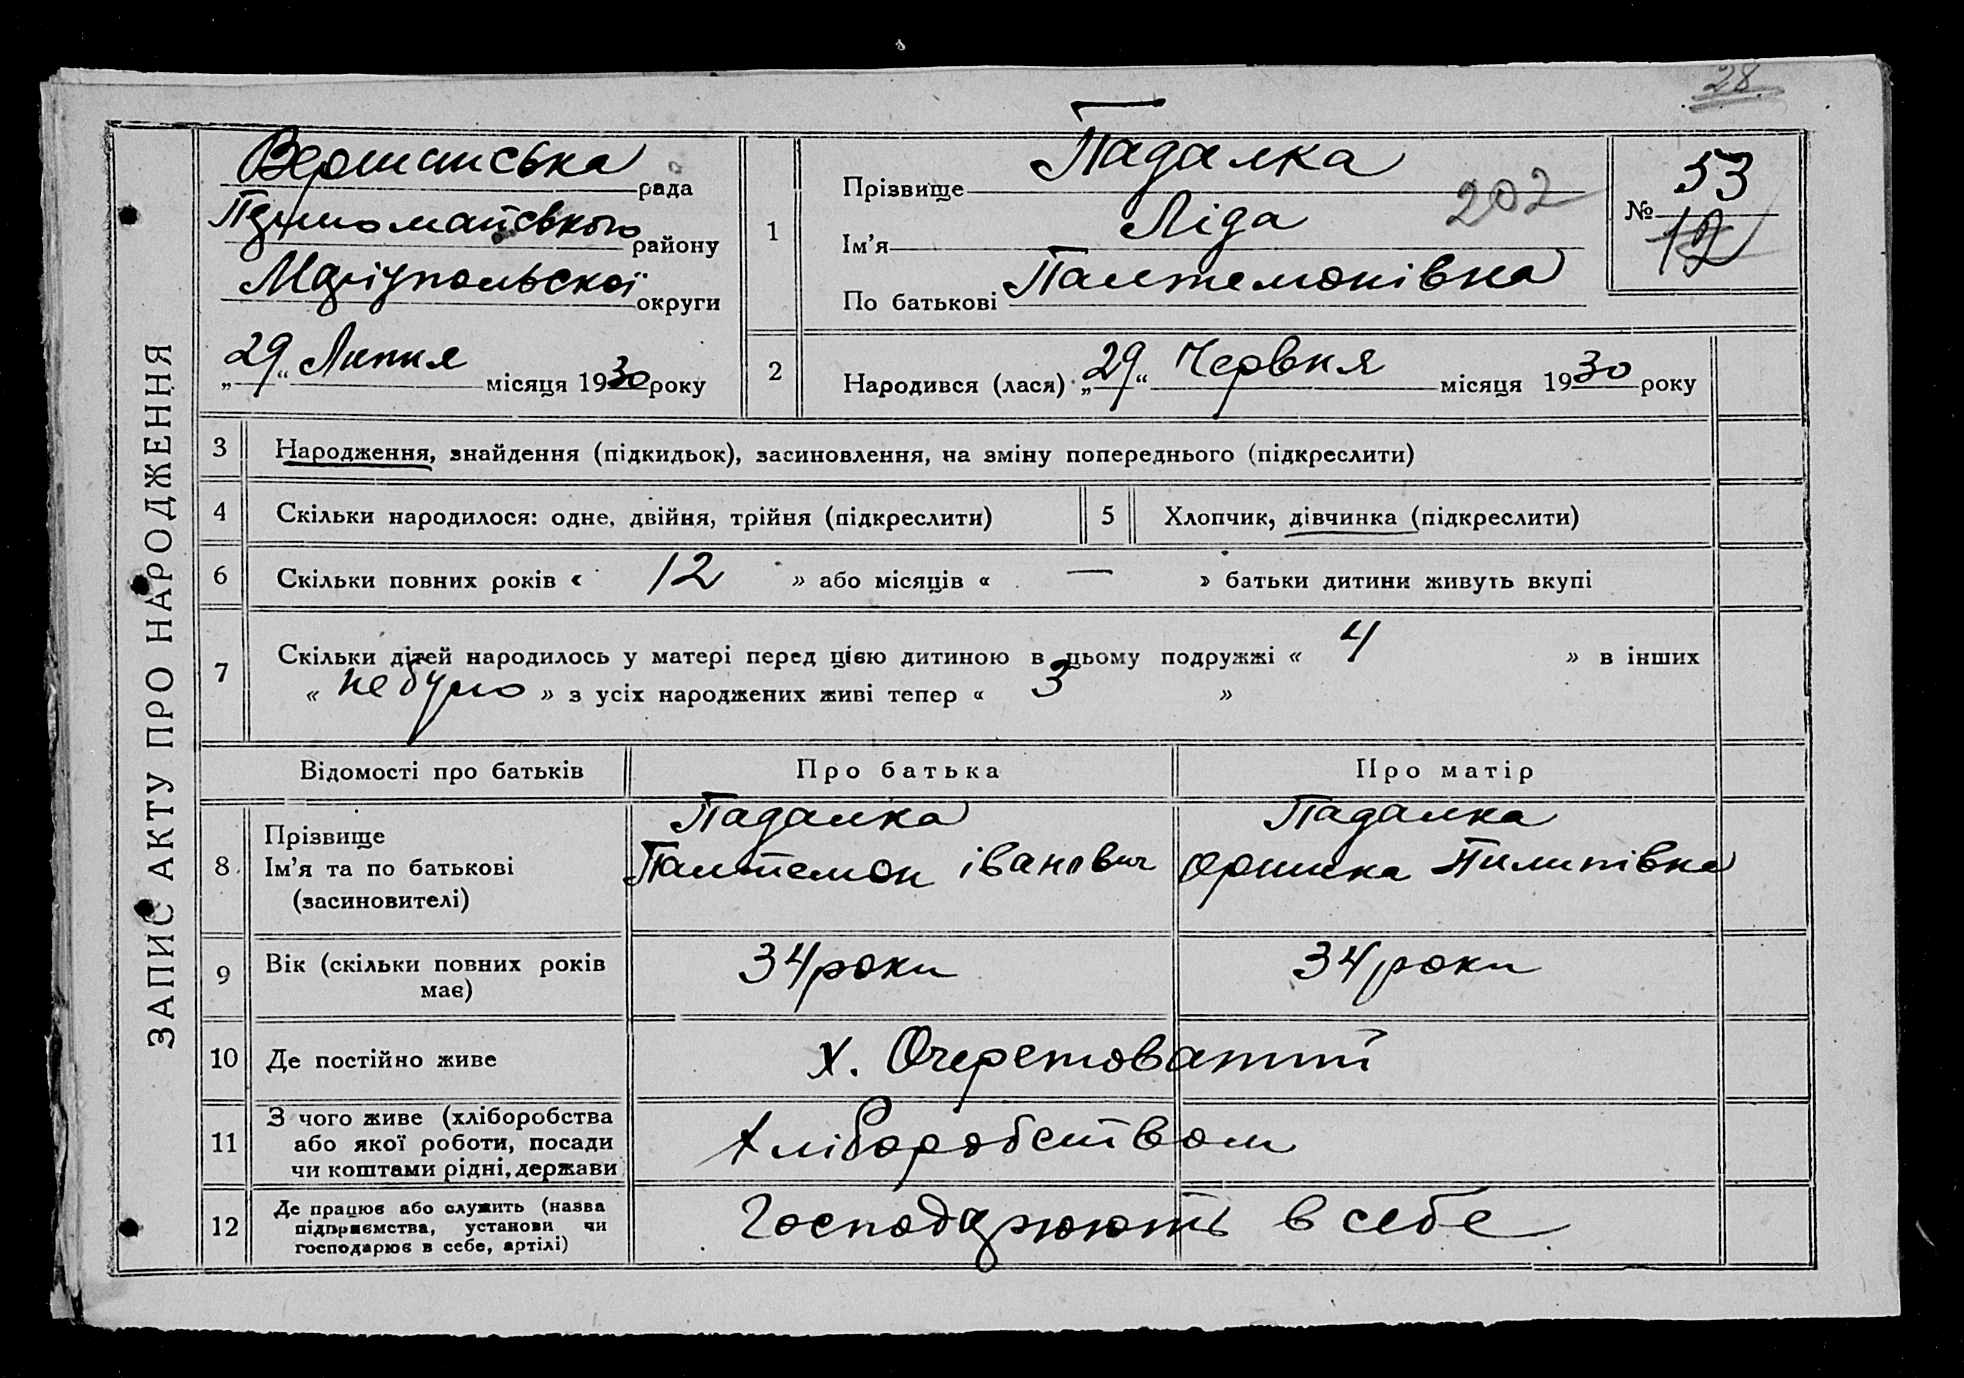 28
ЗАПИС АКТУ ПРО НАРОДЖЕННЯ
Вершинська рада
Першомайського району
Маріупольської округи
„29“ Липня місяця 1930 року
1
Прізвище Падалка
Ім’я Ліда 202
По батькові Пантемонівна
№ 53
12
2 Народився (лася) „29“ Червня місяця 1930 року
3 Народження, знайдення (підкидьок), засиновлення, на зміну попереднього (підкреслити)
4 Скільки народилося: одне, двійня, трійня (підкреслити) 5 Хлопчик, дівчинка (підкреслити)
6 Скільки повних років « 12 » або місяців « — » батьки дитини живуть вкупі
7 Скільки дітей народилось у матері перед цією дитиною в цьому подружжі « 4 » в інших
« не було » з усіх народжених живі тепер « 3 »
Відомості про батьків Про батька Про матір
8 Прізвище Падалка Падалка
Ім’я та по батькові Пантемон іванович Оришка Пилипівна
(засиновителі)
9 Вік (скільки повних років має) 34 роки 34 роки
10 Де постійно живе х. Очеретоватий
11 З чого живе (хліборобства
або якої роботи, посади
чи коштами рідні, держави Хліборобством
12 Де працює або служить (назва
підприємства, установи чи
господарює в себе, артілі) Господарюють в себе